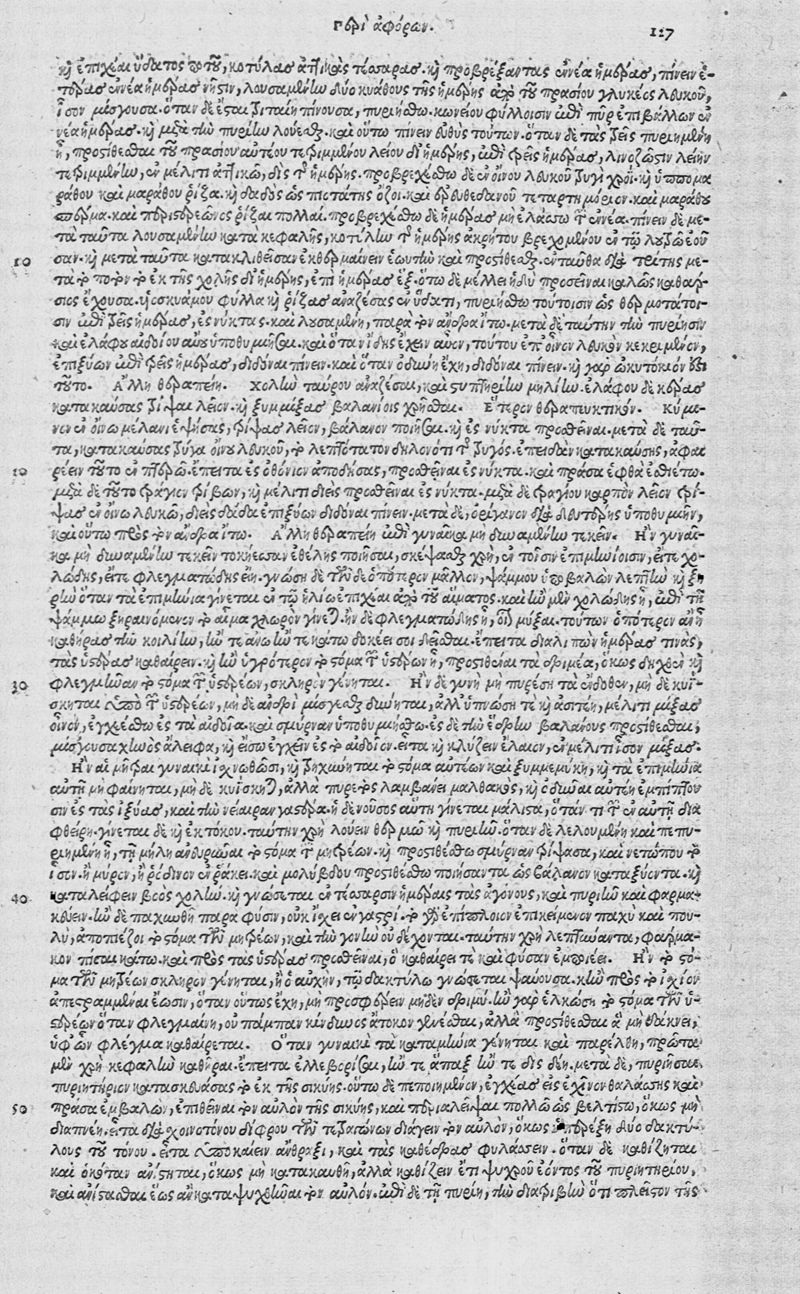 Περὶ ἀφόρων. 117
καὶ ἐπιχέαι ὕδατος τουτέου, κοτύλας ἀττικὰς τέσσαρας. καὶ προβρέξαντας ἐννέα ἡμέρας, πίνειν ἑ-
τέρας ἐννέα ἡμέρας νῆστιν, λουσαμένην δύο κυάθους τῆς ἡμέρης ἀπὸ τοῦ πρασίου γλυκέος λευκοῦ,
ἶσον μίσγουσα. ὅταν δὲ ἔσται τριταίη πίνουσα, πυριήσθω. κωνείου φύλλοισιν ἐπὶ πῦρ ἐπιβάλλων ἐν-
νέα ἡμέρας. καὶ μετὰ τὴν πυρίην λούεσθαι. καὶ οὕτω πίνειν εὐθὺς τούτων. ὅταν δὲ τὰς τρεῖς πυριημένη
ᾖ, προστίθεσθαι τοῦ πρασίου αὐτέου τετριμμένου λείου δι' ἡμέρης, ἐπὶ τρεῖς ἡμέρας, λινόζωστιν λείην
τετριμμένην, ἐν μέλιτι ἀττικῷ, δὶς τῆς ἡμέρης. προβρεχέσθω δὲ ἐν οἴνου λευκοῦ τρυγὶ χρόῃ. καὶ ἱππομα
ράθου καὶ μαράθου ῥίζα. καὶ δαδὸς ὡς πιοτάτης ὄζοι. καὶ ἐρευθεδανοῦ τετάρτη μόριον. καὶ μαράθου
σπέρμα. καὶ πτερὶς
τὰ ταῦτα λουσαμένην κατὰ κεφαλῆς, κοτύλην τῆς ἡμέρης ἀκρήτου βρεχομένου
σαν. καὶ μετὰ ταῦτα κατακλιθεῖσαν ἐκθερμαίνειν ἑωυτὴν καὶ προστίθεσθαι. ἐνταῦθα διὰ τρίτης με-
τὰ τὸ ποτὸν τὸ ἐκ τῆς χολῆς δι' ἡμέρης, ἐπὶ ἡμέρας ἕξ. ὅτω δὲ μέλλει ἤδη προσεῖναι καλῶς καθαρ-
σίος ἔχουσα. ὑοσκυάμου φύλλα καὶ ῥίζας ἀναζέσας ἐν ὕδατι, πυριήσθω τούτοισιν ὡς θερμοτάτοι-
σιν ἐπὶ τρεῖς ἡμέρας, ἐς νύκτας. καὶ λουσαμένη, παρὰ τὸν ἄνδρα ἴτω. μετὰ δὲ ταύτην τὴν πυρίησιν
καὶ ἐλάφου αἰδοίου αὔου ὑποθυμιῆσαι. καὶ ὅταν ἴδῃς ἔχειν αὖον, τούτου ἐπ' οἶνον λευκὸν κεκρημένον,
ἐπιξύων ἐπὶ τρεῖς ἡμέρας, διδόναι πίνειν. καὶ ὅταν ὀδύνη ἔχῃ, διδόναι πίνειν. καὶ γὰρ ὠκυτόκιόν ἐστι
τοῦτο. Ἄλλη θεραπείη. Χολὴν ταύρου ἀναζέσαι, καὶ στυπτηρίην μηλίην. ἐλάφου δὲ κέρας
κατακαύσας τρῖψαι λεῖον. καὶ ξυμμίξας βαλανίοις χρῆσθαι. Ἕτερον θεραπευτικόν. Κύμι-
νον ἐν οἴνῳ μέλανι ἑψήσας, τρίψας λεῖον, βάλανον ποιῆσαι. καὶ ἐς νύκτα προσθεῖναι. μετὰ δὲ ταῦ-
τα, κατακαύσας τρύγα οἴνου λευκοῦ, τὸ λεπτότατον δηλονότι τῆς τρυγός. ἐπειδὰν κατακαύσῃς, ἀφαι
ρέειν τοῦτο ἐν πτερῷ. ἔπειτα ἐς ὀθόνιον ἀποδήσας, προσθεῖναι ἐς νύκτα. καὶ πράσα ἑφθὰ ἐσθιέτω.
μετὰ δὲ τοῦτο φάγιον τρίβων, καὶ μέλιτι διεὶς προσθεῖναι ἐς νύκτα. μετὰ δὲ φαγίου καρπὸν λεῖον τρί-
ψας ἐν οἴνῳ λευκῷ, διεὶς δᾷδα ἐπιξύων διδόναι πίνειν. μετὰ δὲ, ὀρίγανον διὰ δευτέρης ὑποθυμιῆν,
καὶ οὕτω πρὸς τὸν ἄνδρα ἴτω. Ἄλλη θεραπείη ἐπὶ γυναῖκα μὴ δυναμένην τεκεῖν. Ἢν γυναῖ-
κα μὴ δυναμένην τεκεῖν τοκήεσσαν ἐθέλῃς ποιῆσαι, σκέψασθαι χρὴ, ἐν τοῖσιν ἐπιμηνίοισιν, εἴτε χο-
λώδης, εἴτε φλεγματώδης ἐῄ. γνώσῃ δὲ τῶνδε ὁπότερον μᾶλλον, ψάμμον ὑποβαλὼν λεπτὴν καὶ ξη
ρὴν ὅταν τὰ ἐπιμήνια γίνεται ἐν τῷ ἡλίῳ ἐπιχέαι ἀπὸ τοῦ αἵματος. καὶ ἢν μὲν χολώδης ᾖ, ἐπὶ τῇ
ψάμμῳ ξηραινόμενον τὸ αἷμα χλωρὸν γίνεται. ἢν δὲ φλεγματώδης ᾖ, οἷον μύξαι. τούτων ὁπότερον ἂν ᾖ
καθήρας τὴν κοιλίην, ἤν τε ἄνω ἤν τε κάτω δοκέει σοι δέεσθαι. ἔπειτα διαλιπὼν ἡμέρας τινὰς,
τὰς ὑστέρας καθαίρειν. καὶ ἢν ὑγρότερον τὸ στόμα τῶν ὑστέρων ᾖ, προστιθέναι τὰ δριμέα, ὅκως δηχθῇ καὶ
φλεγμῆναν τὸ στόμα τῶν ὑστερέων, σκληρὸν γένηται. Ἢν δὲ γυνὴ μὴ πυρέσσῃ τὰ ἔνδοθεν, μὴ δὲ κυΐ-
σκηται ὑπὸ τῶν ὑστερέων, μὴ δὲ ἀνδρὶ μίσγεσθαι δύνηται, ἀλλ' ὑπνώσσῃ τε καὶ ἀσιτέῃ, μέλιτι μίξας
οἶνον, ἐγχέεσθω ἐς τὰ αἰδοῖα. καὶ σμύρναν ὑποθυμιήσθω. ἐς δὲ τὴν ἕδρην βαλάνους προστίθεσθαι,
μίσγουσα χηνὸς ἄλειφα, καὶ εἴσω ἐγχεῖν ἐς τὸ αἰδοῖον. εἶτα καὶ κλύζειν ἔλαιον, ἐν μέλιτι ἶσον μίξας.
Ἢν αἱ μῆτραι γυναικὶ ἰσχνωθῶσι, καὶ τρηχύνηται τὸ στόμα αὐτέων καὶ ξυμμεμύκῃ, καὶ τὰ ἐπιμήνια
αὐτῇ μὴ φαίνηται, μὴ δὲ κυΐσκηται, ἀλλὰ πυρετὸς λαμβάνει μαλθακὸς, καὶ ὀδύναι αὐτέῃ ἐμπίπτου
σιν ἐς τὰς ἰξύας, καὶ τὴν νείαιραν γαστέρα. ἡ δὲ νοῦσος αὕτη γίνεται μάλιστα, ὅταν τι τῶν ἐν αὐτῇ δια
φθείρῃ. γίνεται δὲ καὶ ἐκ τόκου. ταύτην χρὴ λούειν θερμῷ καὶ πυριῆν. ὅταν δὲ λελουμένη καὶ πεπυ-
ριημένη ᾖ, τῇ μήλῃ ἀνευρῦναι τὸ στόμα τῶν μητρέων. καὶ προστιθέσθω σμύρναν τρίψασα, καὶ νέτωπον τὸ
ἶσον. ἢ μύρον, ἢ ῥόδινον ἐν ῥάκει. καὶ μολύβδου προστιθέσθω ποιήσαντα ὡς βάλανον καταξύοντα. καὶ
καταλείφειν βοὸς χολῇ. καὶ γνώσεται ἐν τέσσαρσιν ἡμέραις τὰς ἀγόνους, καὶ πυριῆν καὶ φαρμα-
κεύειν. ἢν δὲ παχυνθῇ παρὰ φύσιν, οὐκ ἴσχει ἐν γαστρί. τὸ γὰρ ἐπίπλοιον ἐπικείμενον παχὺ καὶ που-
λὺ, ἀποπιέζοι τὸ στόμα τῶν μητρέων, καὶ τὴν γονὴν οὐ δέχονται. ταύτην χρὴ λεπτύναντα, φάρμα-
κον πῖσαι κάτω. καὶ πρὸς τὰς ὑστέρας προσθεῖναι, ὃ καθαίρει τε καὶ φῦσαν ἐμποιέει. Ἢν τὸ στό-
μα τῶν μητρέων σκληρὸν γένηται, ἢ ὁ αὐχὴν, τῷ δακτύλῳ γνώσεται ψαύουσα. κἢν πρὸς τὸ ἰσχίον
ἀπεστραμμέναι ἔωσιν, ὅταν οὕτως ἔχῃ, μὴ προσφέρειν μηδὲν δριμύ. ἢν γὰρ ἑλκώσῃ τὸ στόμα τῶν ὑ-
στερέων ὅταν φλεγμαίνῃ, οὐ πάμπαν κίνδυνος ἄτοκον γενέσθαι, ἀλλὰ προστίθεσθαι ἃ μὴ δάκνει,
ὑφ' ὧν φλέγμα καθαίρεται. Ὅταν γυναικὶ τὰ καταμήνια γένηται καὶ παρέλθῃ, πρῶτα
μὲν χρὴ κεφαλὴν καθῆραι. ἔπειτα ἐλλεβορίζειν, ἤν τε ἅπαξ ἤν τε δὶς δέῃ. μετὰ δὲ, πυριῆσαι
πυριητήριον κατασκευάσας τὸ ἐκ τῆς σικύης. οὕτω δὲ πεποιημένον, ἐγχέας εἰς ἐχῖνον θαλάσσης καὶ
πράσα ἐμβαλὼν, ἐπιθεῖναι τὸν αὐλὸν τῆς σικύης, καὶ περιαλεῖψαι πολλῷ ὡς βελτίστῳ, ὅκως μὴ
διαπνέῃ. εἶτα διὰ σχοινοτόνου δίφρου τῶν τεβατώνων διάγειν τὸν αὐλὸν, ὅκως ὑπερέξῃ δύο δακτύ-
λους τοῦ τόνου. εἶτα ὑποκαίειν ἄνθραξι, καὶ τὰς καθέδρας φυλάσσειν. ὅταν δὲ καθίζηται
καὶ ὁκόταν ἀνίστηται, ὅκως μὴ κατακαυθῇ, ἀλλὰ καθίζειν ἔτι ψυχροῦ ἐόντος τοῦ πυριητηρίου,
καὶ ἀνίστασθαι ἕως ἂν καταψυχθῆναι τὸν αὐλόν. ἐπὶ δὲ τῇ πυρίῃ, τὴν διατριβὴν ὅτι πλεῖστον τῆς
10
20
30
40
50